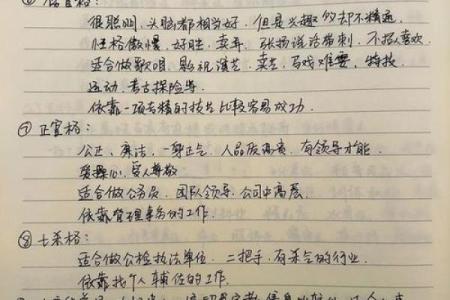 官格：
很聪明，头脑都相当好，但是兴趣的却不精通，
性格傲慢，好胜，卖弄，张扬说话带刺，不招喜欢
适合做歌唱，影视演艺，卖艺，马戏难耍，特技
运动，考古探险等
依靠一项专精的技艺比较容易成功。
⑦正官格：
公正，廉洁，一身正气，人品质高贵，有领导才能，
责，受人尊敬
适合做公务员，团队领导，公司中高层
依靠管理事务的工作。
⑧七杀格：
适合做公检执法单位，二把手，有杀气的行业
依靠找个人辅佐的工作。